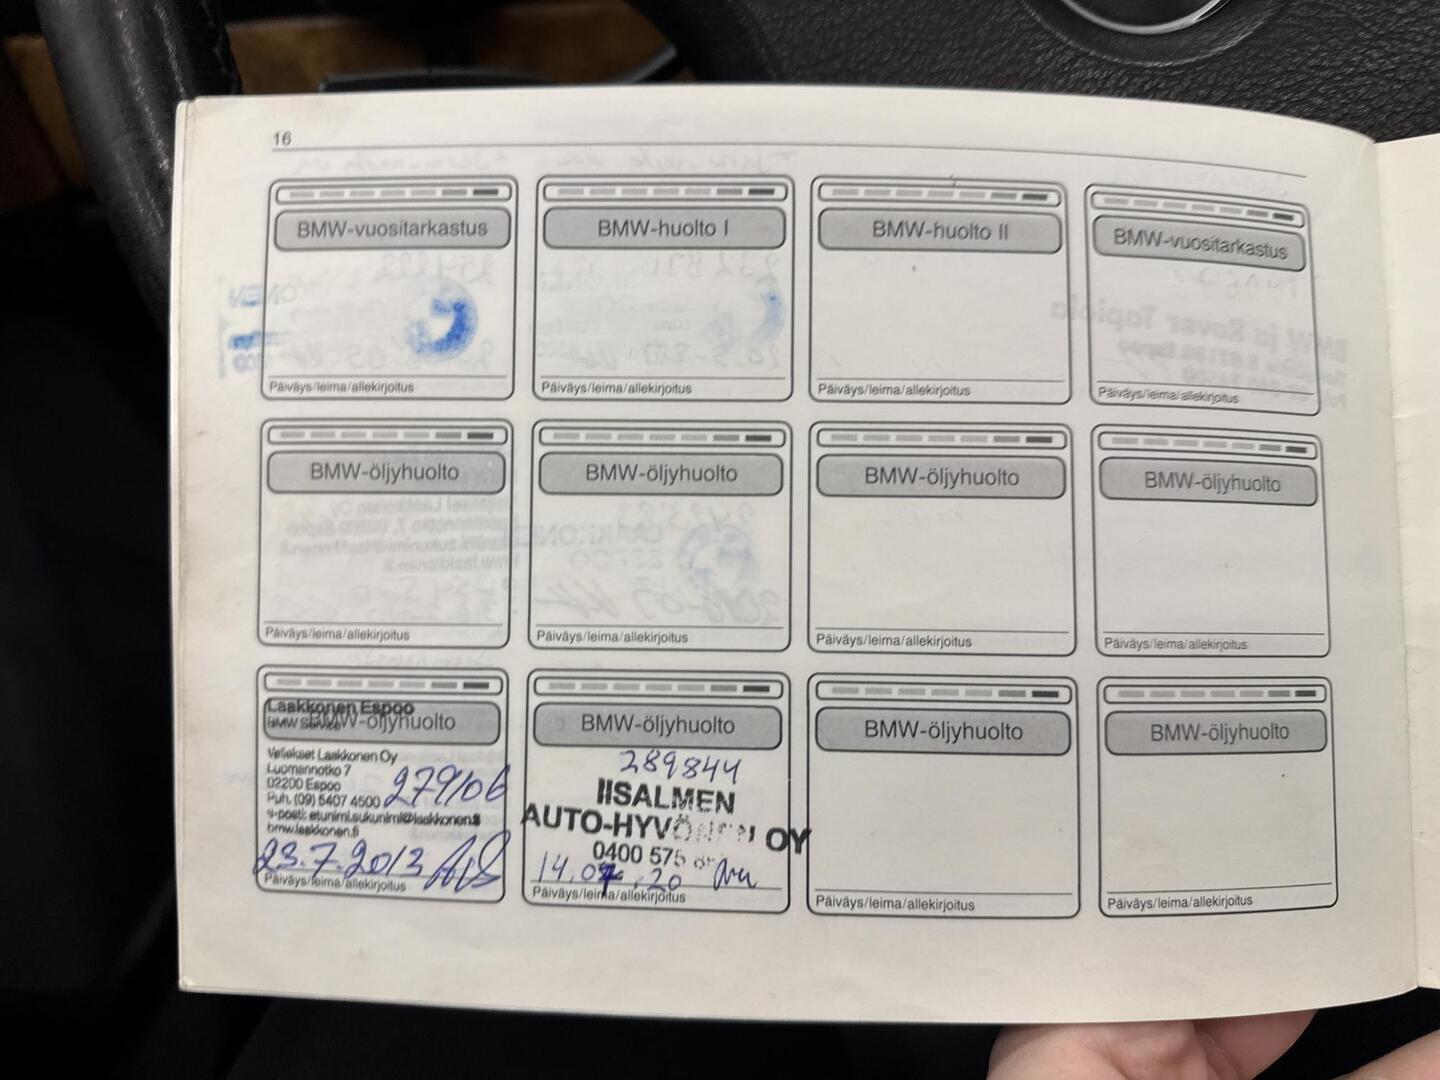 16
BMW-vuositarkastus
BMW-huolto I
BMW-huolto II
BMW-vuositarkastus
Päiväys/leima/allekirjoitus
Päiväys/leima/allekirjoitus
Päiväys/leima/allekirjoitus
Päiväys/leima/allekirjoitus
BMW-öljyhuolto
BMW-öljyhuolto
BMW-öljyhuolto
BMW-öljyhuolto
Päiväys/leima/allekirjoitus
Päiväys/leima/allekirjoitus
Päiväys/leima/allekirjoitus
Päiväys/leima/allekirjoitus
Laakkonen Espoo
BMW Service
BMW-öljyhuolto
Veljekset Laakkonen Oy
Luomannotko 7
02200 Espoo
Puh. (09) 5407 4500
279106
s-posti: etunimi.sukunimi@laakkonen.fi
bmw.laakkonen.fi
23.7.2013
Päiväys/leima/allekirjoitus
BMW-öljyhuolto
289844
IISALMEN
AUTO-HYVÖNEN OY
0400 575
Päiväys/leima/allekirjoitus
BMW-öljyhuolto
Päiväys/leima/allekirjoitus
BMW-öljyhuolto
Päiväys/leima/allekirjoitus